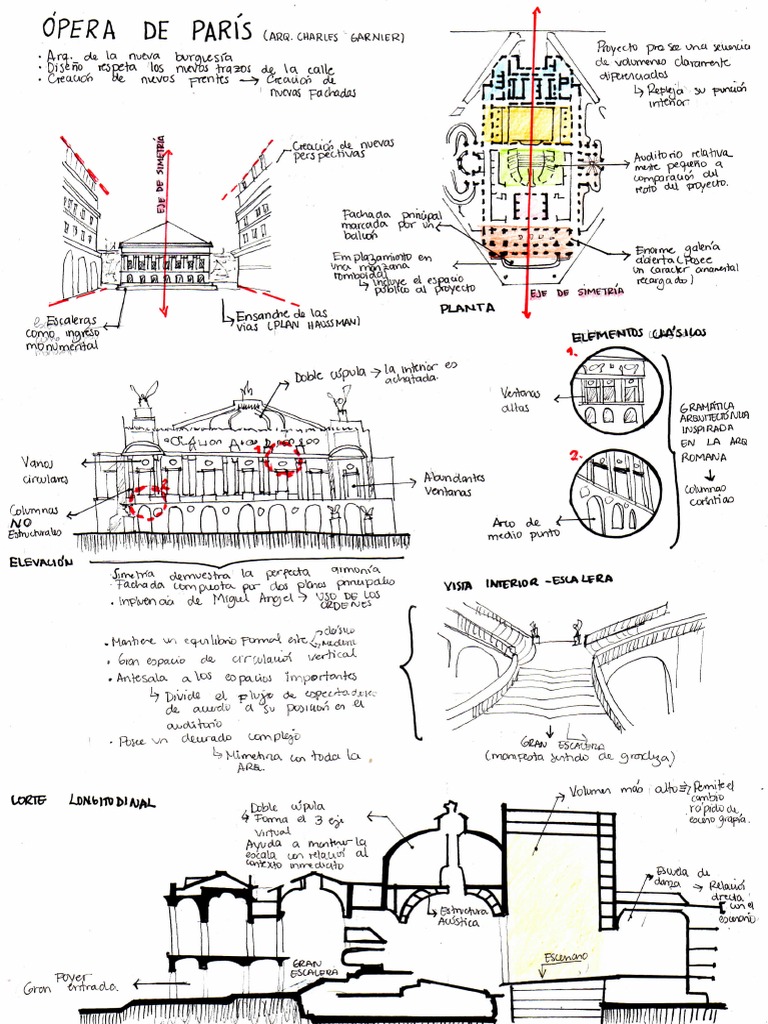 ÓPERA DE PARÍS (ARQ. CHARLES GARNIER)
· Arq. de la nueva burguesía
· Diseño respeta los nuevos trazos de la calle
· Creación de nuevos frentes → Creación de
nuevas fachadas
EJE DE SIMETRÍA
Creación de nuevas
perspectivas
Escaleras
como ingreso
monumental
Ensanche de las
vías (PLAN HAUSSMAN)
Proyecto posee una secuencia
de volumenes claramente
diferenciados
↳ Refleja su función
interior
Auditorio relativa
mente pequeño a
comparación del
resto del proyecto.
Fachada principal
marcada por un
balcón
Emplazamiento en
una manzana
romboidal
↳ Incluye el espacio
público al proyecto
Enorme galería
abierta (Posee
un caracter ornamental
recargado)
EJE DE SIMETRÍA
PLANTA
ELEMENTOS CLÁSICOS
1.
Ventanas
altas
2.
Arco de
medio punto
GRAMÁTICA
ARQUITECTÓNICA
INSPIRADA
EN LA ARQ
ROMANA
↓
Columnas
corintias
Doble cúpula → la interior es
achatada.
Vanos
circulares
Columnas
NO
Estructurales
Abundantes
ventanas
1.
2
ELEVACIÓN
Simetría demuestra la perfecta armonía
Fachada compuesta por dos planos principales
· Influencia de Miguel Angel → USO DE LOS
ÓRDENES
· Mantiene un equilibrio formal entre clásico
· Gran espacio de circulación vertical
· Antesala a los espacios importantes
↳ Divide el flujo de espectadores
de acuerdo a su posición en el
auditorio
· Posee un decorado complejo
↳ Mimetiza con toda la
ARQ.
VISTA INTERIOR - ESCALERA
GRAN ESCALERA
(manifiesta sentido de grandeza)
CORTE LONGITUDINAL
Doble cúpula
↳ Forma el 3 eje
virtual
Ayuda a mantener la
escala con relación al
contexto inmediato
Volumen más alto → Permite el
cambio
rápido de
escenografía.
Escuela de
danza → Relación
directa
con el
escenario
Estructura
Acústica
Escenario
GRAN
ESCALERA
Foyer
Gran entrada.